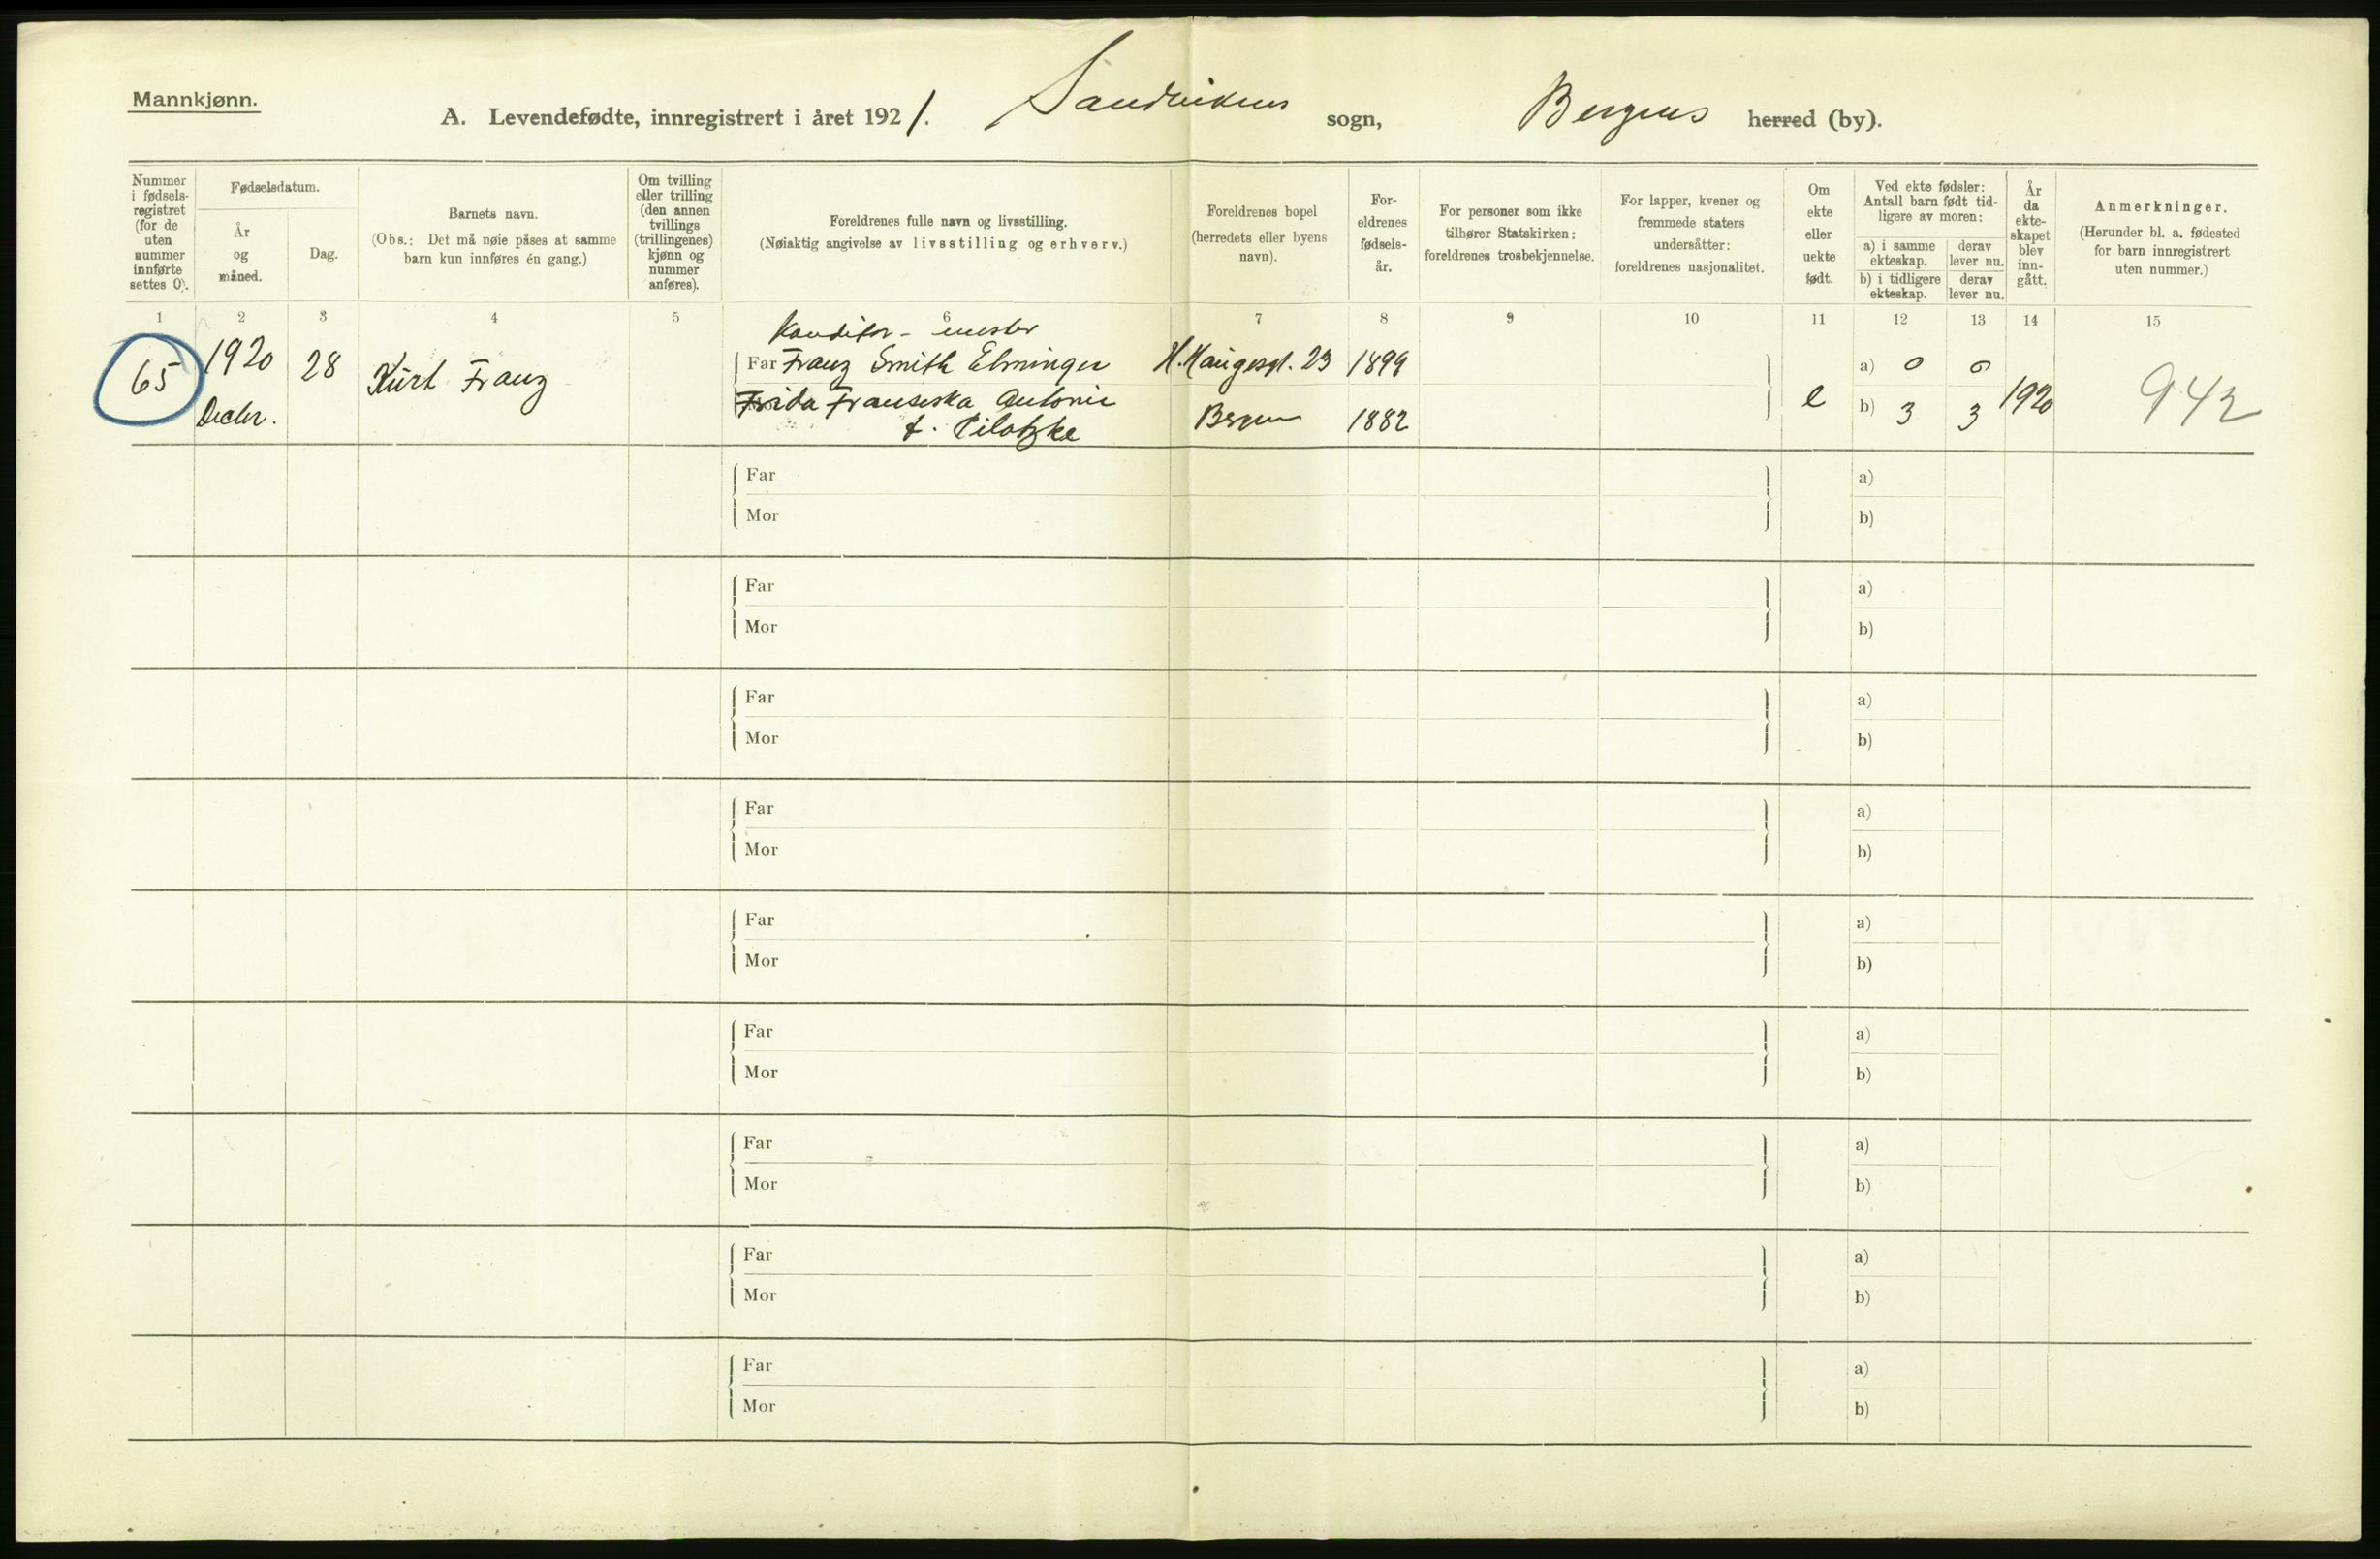 Mannkjønn.
A. Levendefødte, innregistrert i året 1921. Sandvikens sogn, Bergens herred (by).
Nummer i fødselsregistret (for de uten nummer innførte settes 0).
Fødselsdatum.
År og måned.
Dag.
Barnets navn.
(Obs.: Det må nøie påses at samme barn kun innføres én gang.)
Om tvilling eller trilling (den annen tvillings (trillingenes) kjønn og nummer anføres).
Foreldrenes fulle navn og livsstilling.
(Nøiaktig angivelse av livsstilling og erhverv.)
Foreldrenes bopel (herredets eller byens navn).
Foreldrenes fødselsår.
For personer som ikke tilhører Statskirken: foreldrenes trosbekjennelse.
For lapper, kvener og fremmede staters undersåtter: foreldrenes nasjonalitet.
Om ekte eller uekte født.
Ved ekte fødsler: Antall barn født tidligere av moren:
a) i samme ekteskap.
derav lever nu.
b) i tidligere ekteskap.
derav lever nu.
År da ekteskapet blev inngått.
Anmerkninger.
(Herunder bl. a. fødested for barn innregistrert uten nummer.)
1 2 3 4 5 6 7 8 9 10 11 12 13 14 15
Konditor-mester
65 1920 28 Kurt Franz Far Franz Smith Elminger H. Haugesgt. 23 1899 a) 0 0
Decbr. Frida Franseska Antonie Bergen 1882 e b) 3 3 1920 942
f. Pilatzke
Far a)
Mor b)
Far a)
Mor b)
Far a)
Mor b)
Far a)
Mor b)
Far a)
Mor b)
Far a)
Mor b)
Far a)
Mor b)
Far a)
Mor b)
Far a)
Mor b)